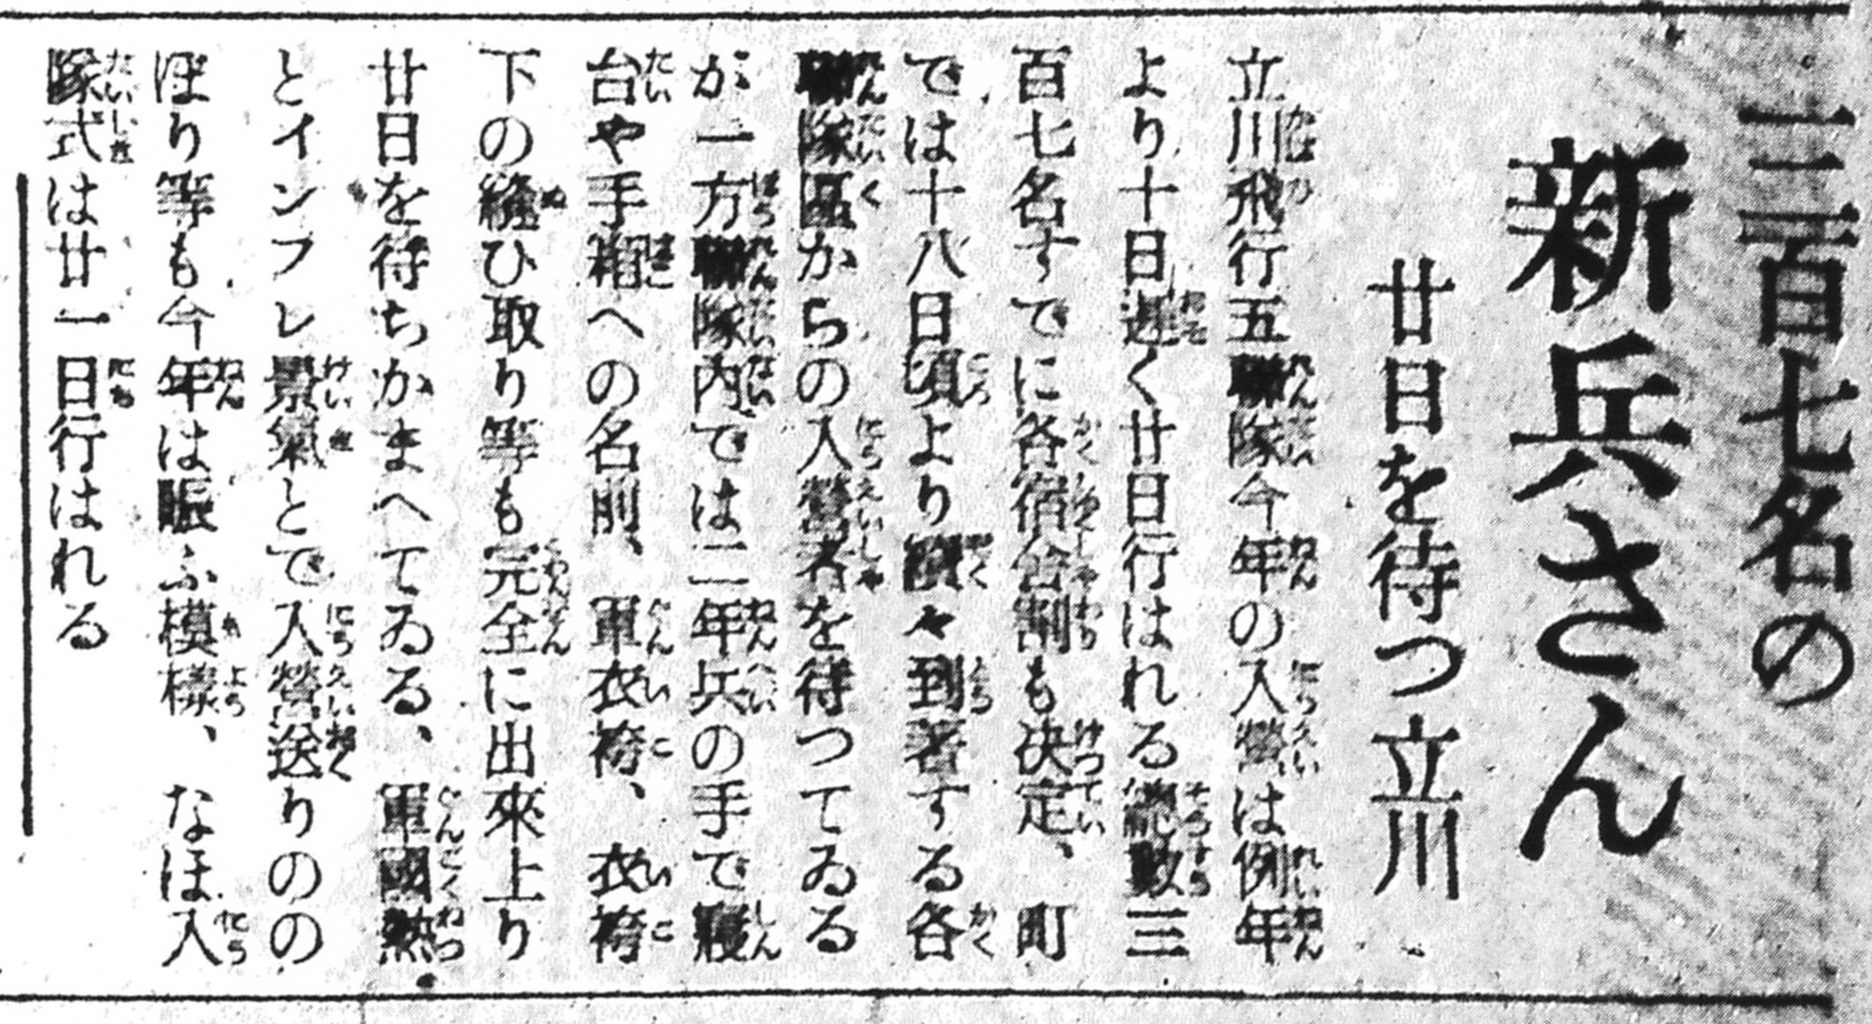 三百七名の
新兵さん
廿日を待つ立川
立川飛行五聯隊今年の入營は例年
より十日遲く廿日行はれる總數三
百七名すでに各宿舍割も決定、町
では十八日頃より續々到著する各
聯隊區からの入營者を待つてゐる
が一方聯隊内では二年兵の手で寢
台や手箱への名前、軍衣袴、衣袴
下の縫ひ取り等も完全に出來上り
廿日を待ちかまへてゐる、軍國熱
とインフレ景氣とで入營送りのの
ぼり等も今年は賑ふ模樣、なほ入
隊式は廿一日行はれる